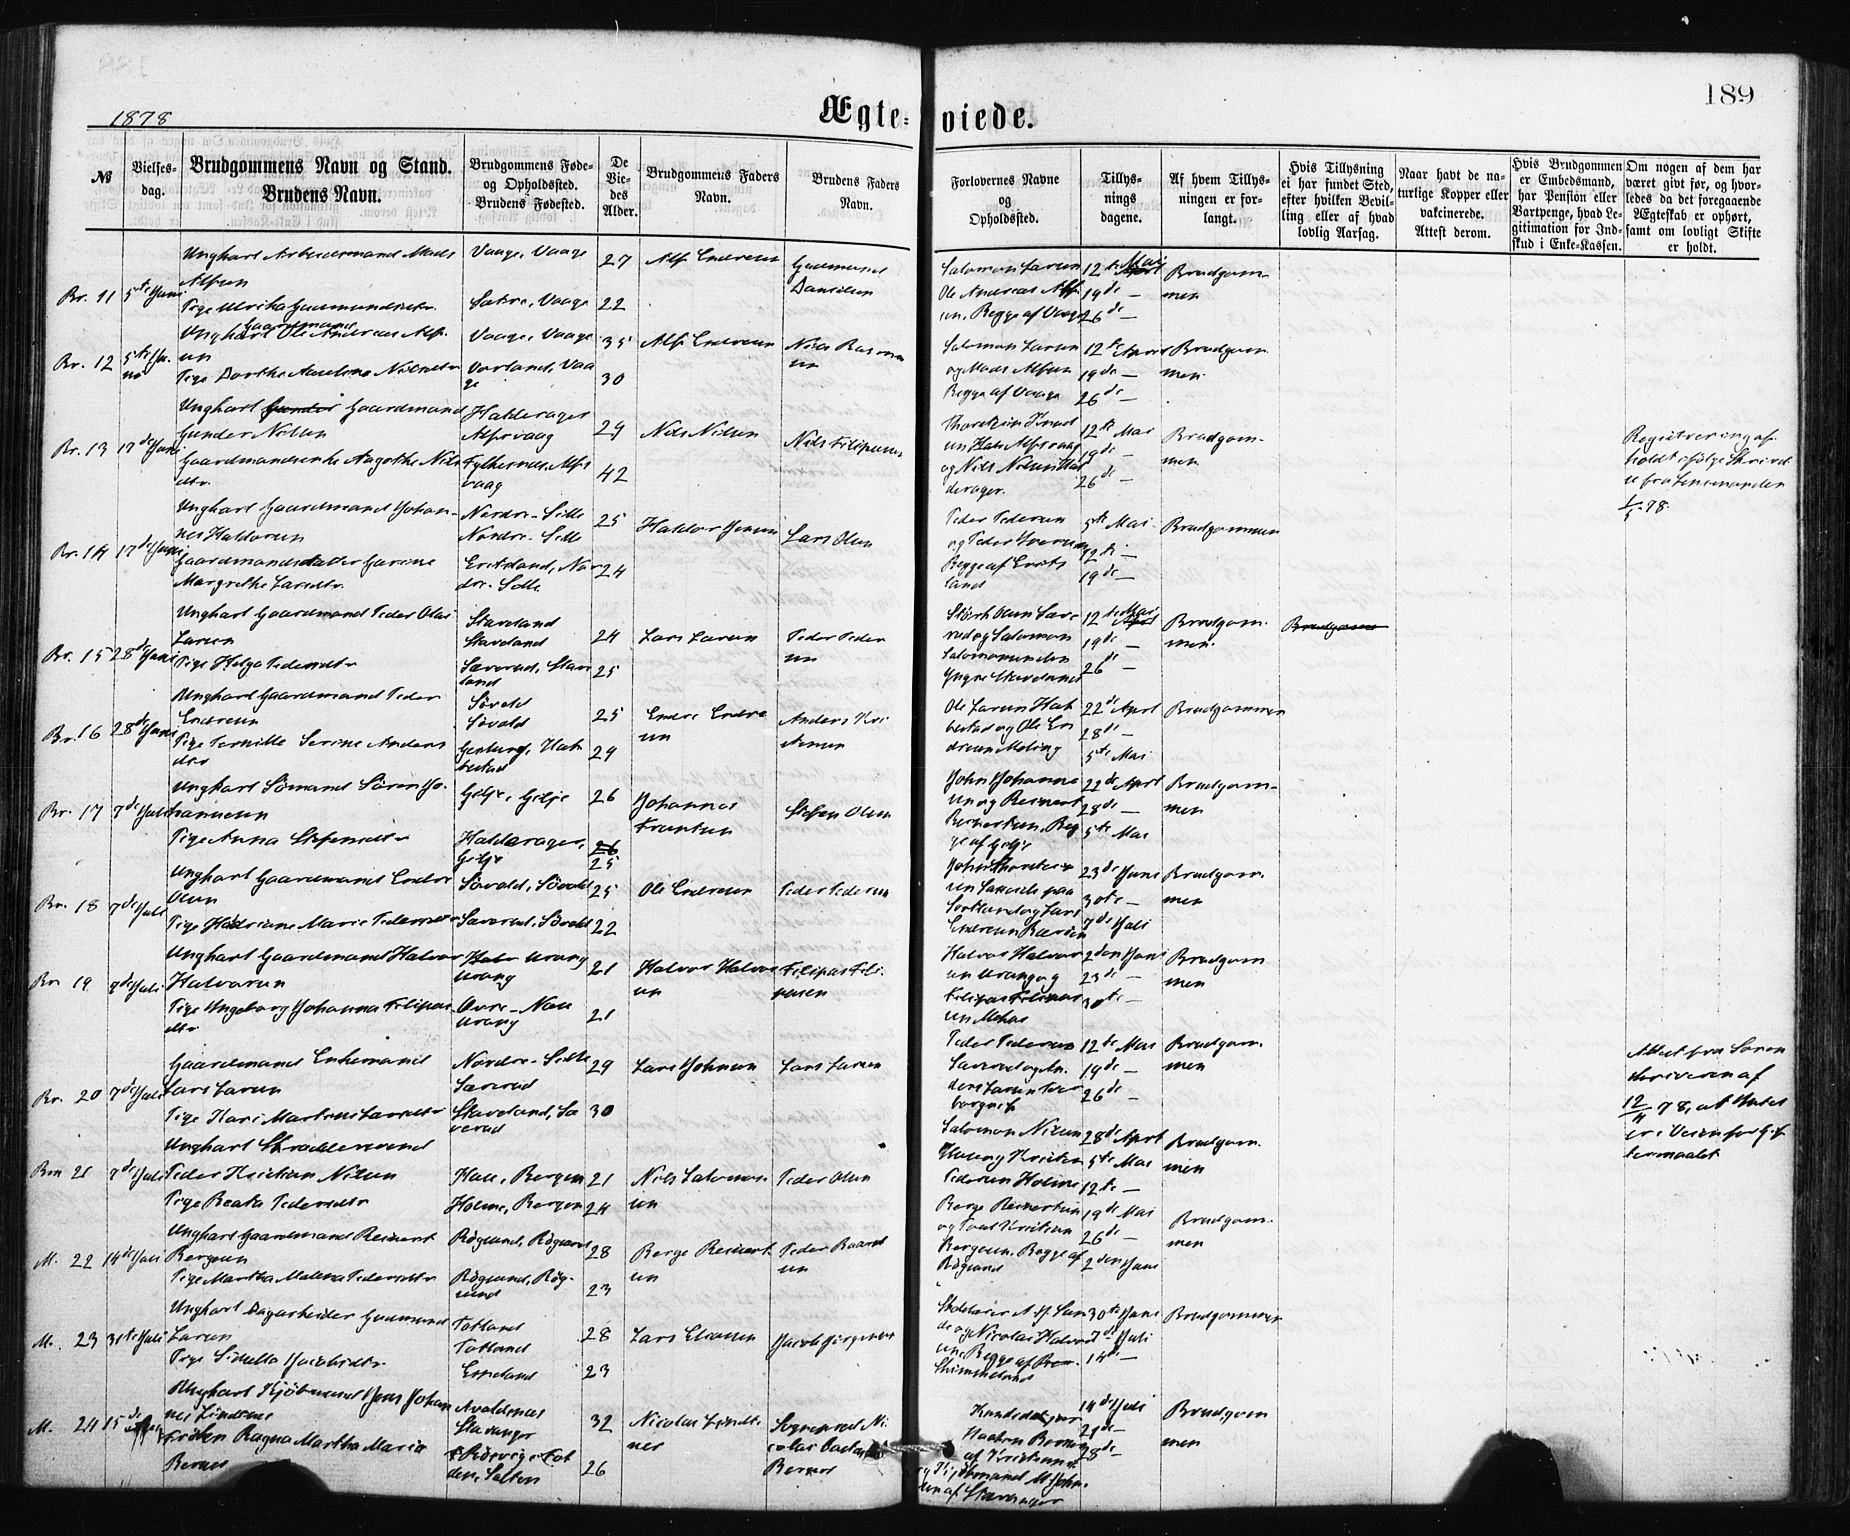 189
1878
Ægte-viede.
№
Vielses-dag.
Brudgommens Navn og Stand.
Brudens Navn.
Brudgommens Føde- og Opholdssted.
Brudens Fødested.
De Vie-des Alder.
Brudgommens Faders Navn.
Brudens Faders Navn.
Forlovernes Navne og Opholdssted.
Tillys-nings dagene.
Af hvem Tillys-ningen er for-langt.
Hvis Tillysning ei har fundet Sted, efter hvilken Bevil-ling eller af hvad lovlig Aarsag.
Naar havt de na-turlige Kopper eller vakcinerede. Attest derom.
Hvis Brudgommen er Embedsmand, har Pension eller Vartpenge, hvad Le-gitimation for Ind-skud i Enke-Kassen.
Om nogen af dem har været givt før, og hvor-ledes da det foregaaende Ægteskab er ophørt, samt om lovligt Skifte er holdt.
Br. 11 5te Juni
Ungkarl Arbeidsmand Mads
Alfsen
Pige Ulrika Gudmundsdtr
Vaage, Vaage 27
Sætre, Vaage 22
Alf Endresen
Gudmund
Danielsen
Salomon Larsen
Ole Andreas Alf-
sen, Begge af Vaage
12te Mai
19de —
26de —
Brudgom-
men
Br. 12 5te Ju-
ni
Ungkarl Gaardmand Ole Andreas Alf-
sen
Pige Dorthe Aaseline Nilsdtr
Vaage, Vaage 35
Vorland, Vaa
ge 30
Alf Endresen
Nils Rasmus
sen
Salomon Larsen
og Mads Alfsen
Begge af Vaage
12te April
19de —
26de —
Brudgom-
men
Br. 13 17de Juni
Ungkarl Gaardmand
Gunder Nilsen
Gaardmandsenke Aagothe Nils
dtr.
Halderaget
Alfsvaag 29
Fylkesnes, Alfs
vaag 42
Nils Nilsen
Nils Filipusen
og Nils Nilsen Hal
derager.
12te Mai
19de —
26de —
Brudgom-
men
Registrering af-
holdt ifølge Skrivel
se fra Lensmanden
1/5 78.
Br. 14 17de Juni
Ungkarl Gaardmand Johan-
nes Haldorsen
Gaardmandsdatter Gurine
Margrethe Larsdtr.
Nordre-Sille
Nordre-Sille 25
Eritsland, Nor
dre-Sille 24
Haldor Jensen
Lars Olsen
Peder Pedersen
og Peder Iversen
Begge af Erits
land
5te Mai
12te —
19de —
Brudgommen
Br. 15 28de Juni
Ungkarl Gaardmand Peder Olai
Larsen
Pige Helga Pedersdtr
Staveland
Staveland 24
Sæverud, Stave
land 25
Lars Larsen
Peder Peder
sen
12te Mai
19de —
26de —
Brudgom-
men.
Br. 16 28de Juni
Ungkarl Gaardmand Peder
Endresen
Pige Pernille Serine Anders
dtr
Sørald
Sørald 25
29
Endre Endre
sen
Anders Kri
stensen
22de April
28de —
5te Mai
Brudgommen
Br. 17 7de Juli
Ungkarl Sømand Søren Jo-
hannesen
Pige Anna Stefensdtr
Gilje, Gilje 26
Halderager,
Gilje 25
Johannes
Stefen Olsen
John Johanne
sen og Reinert
Reinertsen, Beg
ge af Gilje
22de April
28de —
5te Mai
Brudgom-
men
Br. 18 7de Juli
Ungkarl Gaardmand Endre
Olsen
Pige Hadriane Marie Pedersdtr
Sørald, Sørald 25
Sæverud, Sørald 22
Ole Endresen
Peder Pedersen
23de Juni
30te —
7de Juli
Brudgom-
men
Br. 19 7de Juli
Ungkarl Gaardmand Halvor
Halvorsen
Pige Ingeborg Johanna Filipus
dtr
Urang
Urang 21
Øvre-Næse
Urang 21
Halvor Halvor
sen
Filipus Fili-
pusen
Halvor Halvor
sen Urang og
Filipus Filipus
sen Mehus
2den Juni
23de —
30te —
Brudgom-
men
Br. 20 7de Juli
Gaardmand Enkemand
Lars Larsen
Pige Kari Martine Larsdtr
Nordre-Sille
Sæverud 29
Staveland, Sæ
verud 30
Lars Johnsen
Lars Larsen
Peder Pedersen
12te Mai
19de —
26de —
Brudgom-
men
Attest fra Soren
skriveren af
12/4 78, at Intet
er i Veien for Gif
termaalet
Brm 21 7de Juli
Ungkarl Skræddersvend
Peder Kristian Nilsen
Pige Beata Pedersdtr
Hau, Bergen 21
Holme, Bergen 24
Nils Salomon
sen
Peder Olsen
Salomon Nilsen
Hus og Kristen
Pedersen Holme
28de April
5te Mai
12te —
Brudgom-
men
M. 22 14de Juli
Ungkarl Gaardmand Reinert
Bergesen
Pige Martha Malena Pedersdtr
Røgsund, Røgsund 28
Røgsund, Røg-
sund 23
Berge Reinert
sen
Peder Baard
sen
Berge Reinertsen
og Poul Kristian
Bergesen, Begge af
Røgsund
19de Mai
26de —
2den Juni
Brudgom-
men
M. 23 31te Juli
Ungkarl Dagarbeider Gudmund
Larsen
Pige Sidsella Jacobsdtr
Totland
Totland 28
Espeland 23
Lars Eliasen
Jacob Jørgensen
30te Juni
7de Juli
14de —
Brudgommen
M. 24 15de
Ungkarl Kjøbmand Jens Johan
nes Lindtner
Frøken Ragna Martha Maria
Berner
Avaldsnes
Stavanger 32
26
Nicolai Lindt-
ner
Sogneprest Ni
colai
Berner
Kandidat jur
Haakon Berner
af Kristiania
og Kjøbmand M. John
sen af Stavanger
14de Juli
21de —
28de —
Brudgom
men